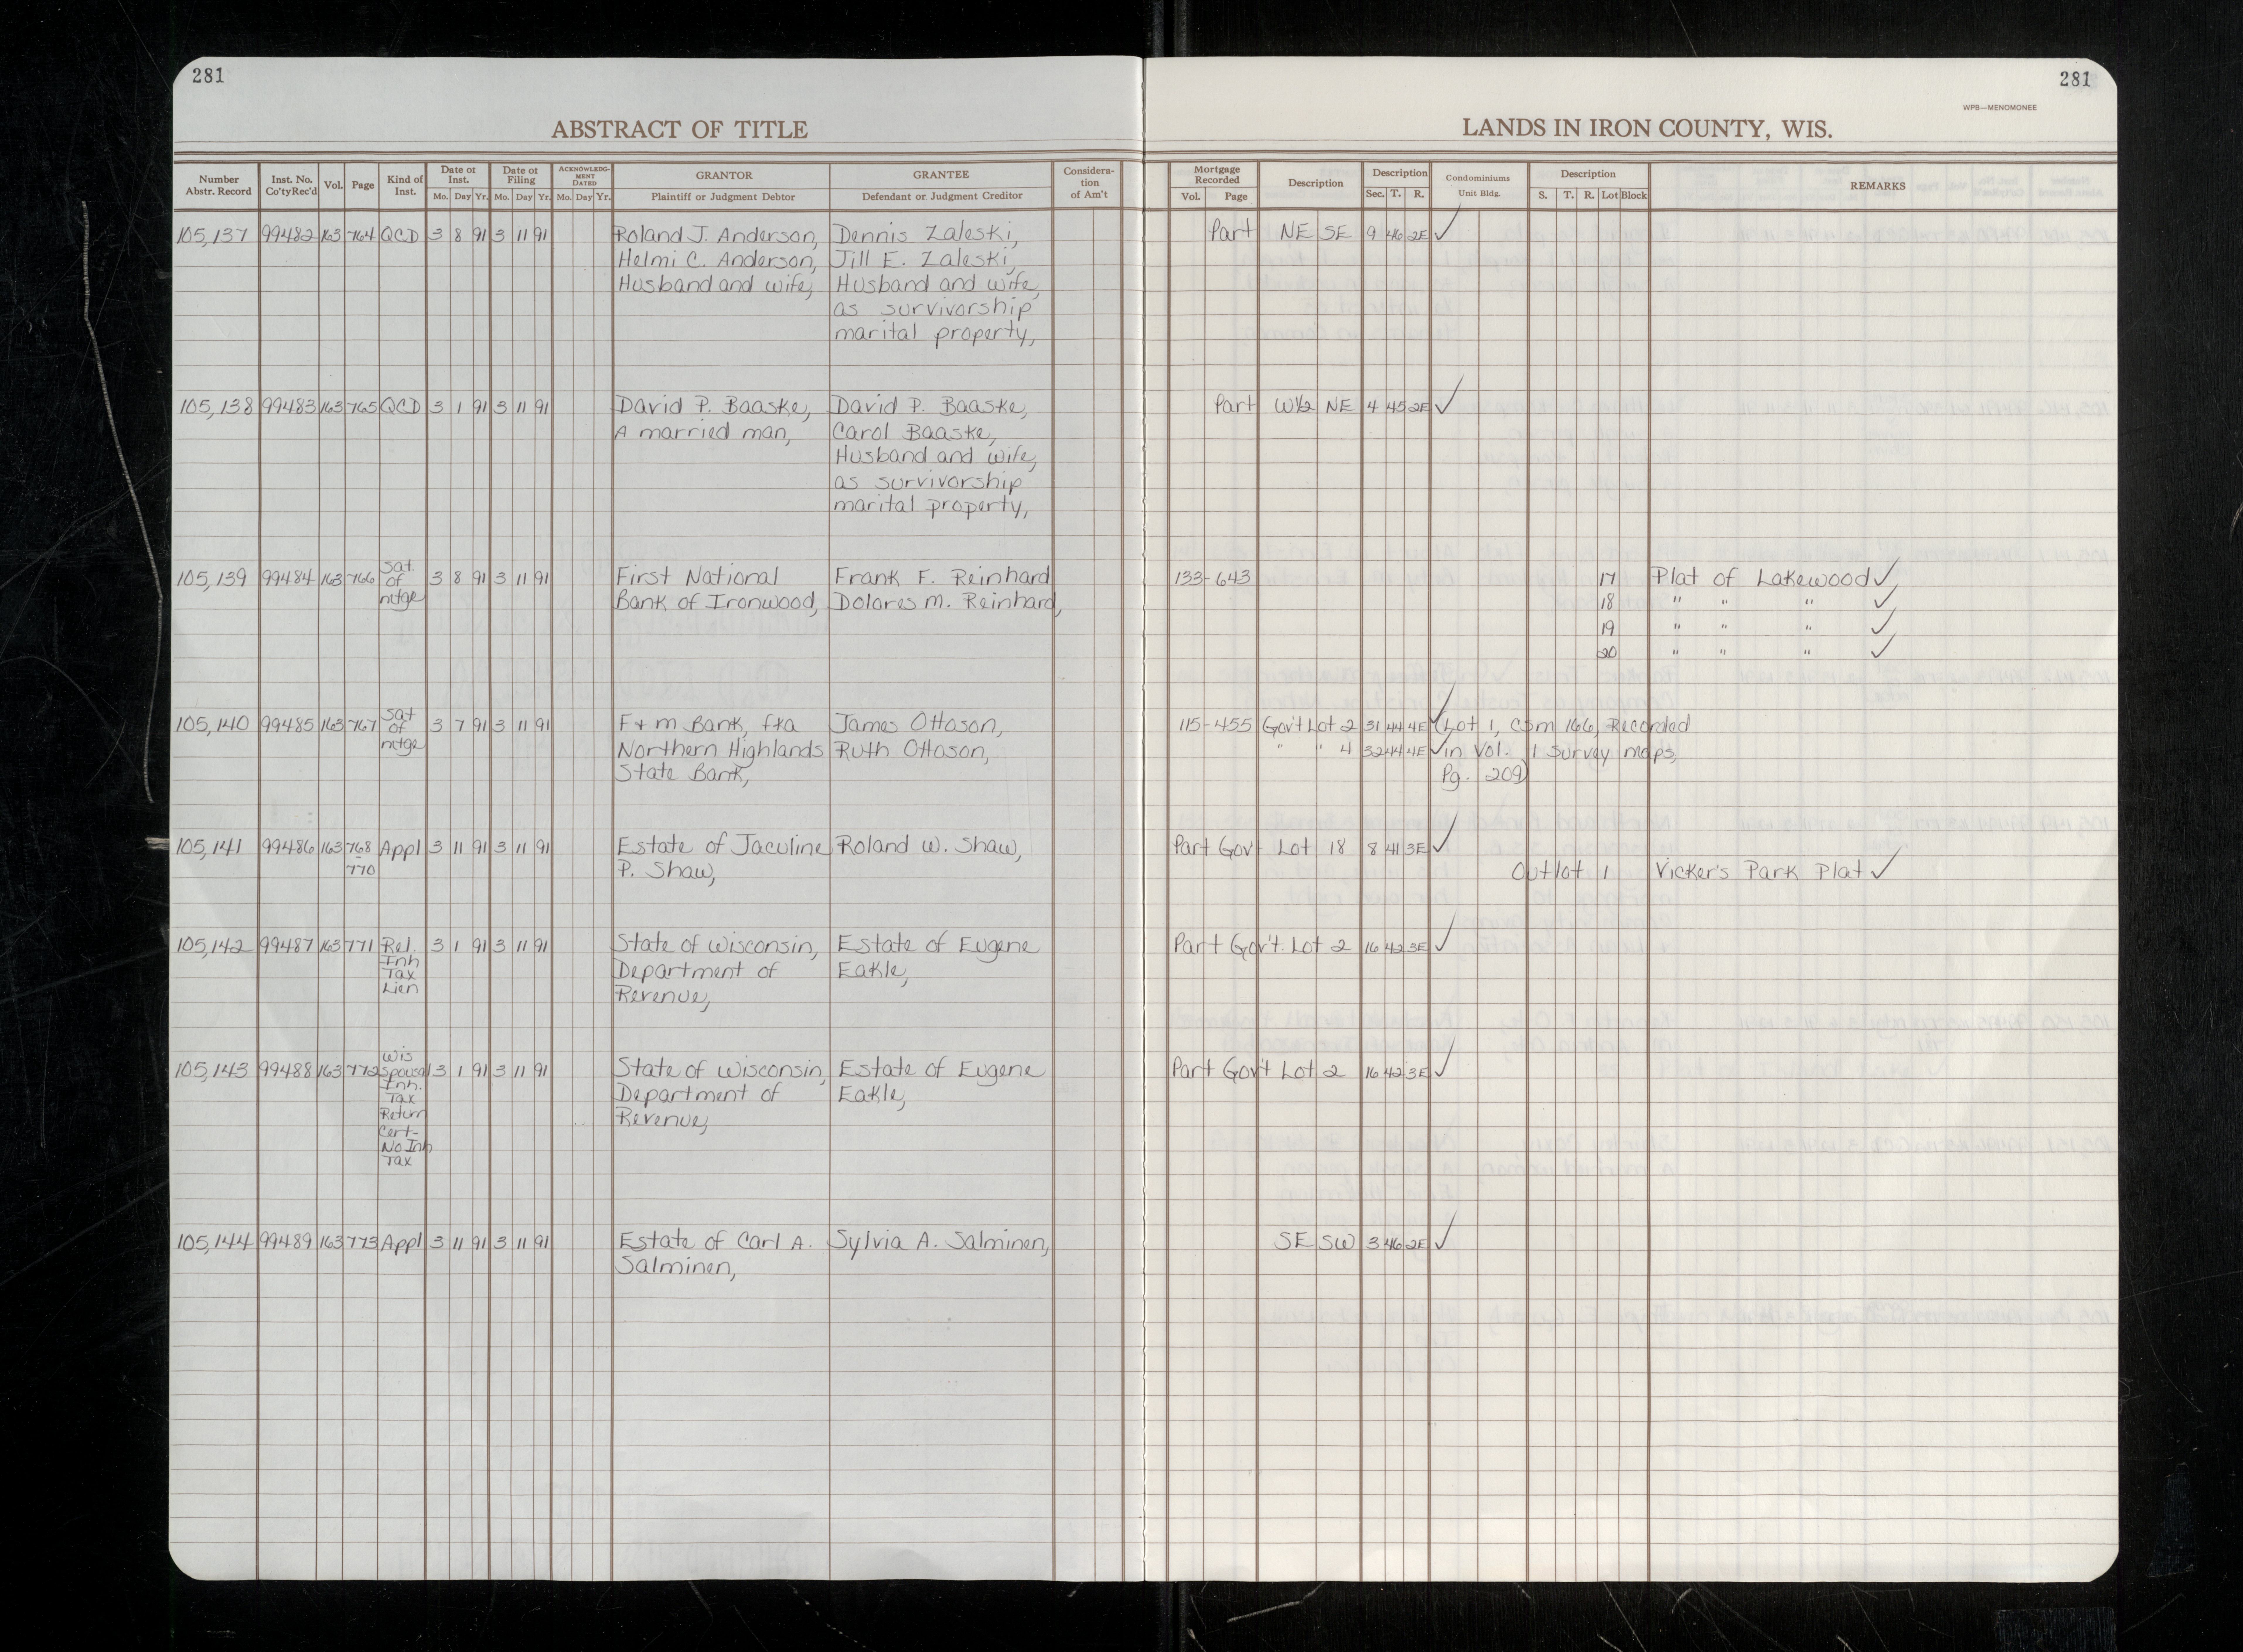 281
281
WPB—MENOMONEE
ABSTRACT OF TITLE
LANDS IN IRON COUNTY, WIS.
Number Abstr. Record | Inst. No. Co'ty Rec'd | Vol. | Page | Kind of Inst. | Date of Inst. Mo. Day Yr. | Date of Filing Mo. Day Yr. | ACKNOWLEDGMENT DATED Mo. Day Yr. | GRANTOR Plaintiff or Judgment Debtor | GRANTEE Defendant or Judgment Creditor | Consideration of Am't | Mortgage Recorded Vol. Page | Description | Description Sec. T. R. | Condominiums Unit Bldg. | Description S. T. R. Lot Block | REMARKS
105,137 99482 163 764 QCD 3 8 91 3 11 91 Roland J. Anderson, Dennis Zaleski, Part NE SE 9 46 2E ✓
Helmi C. Anderson, Jill E. Zaleski,
Husband and wife, Husband and wife,
as survivorship
marital property,
105,138 99483 163 765 QCD 3 1 91 3 11 91 David P. Baaske, David P. Baaske, Part W½ NE 4 45 2E ✓
A married man, Carol Baaske,
Husband and wife,
as survivorship
marital property,
105,139 99484 163 766 Sat. of mtge 3 8 91 3 11 91 First National Frank F. Reinhard 133-643 17 Plat of Lakewood ✓
Bank of Ironwood, Dolores M. Reinhard, 18 " " " ✓
19 " " " ✓
20 " " " ✓
105,140 99485 163 767 Sat of mtge 3 7 91 3 11 91 F+M Bank, fka James Ottoson, 115-455 Gov't Lot 2 31 44 4E ✓ (Lot 1, CSM 166, Recorded
Northern Highlands Ruth Ottoson, " " 4 32 44 4E ✓ in Vol. 1 Survey maps,
State Bank, Pg. 209)
105,141 99486 163 768-770 Appl 3 11 91 3 11 91 Estate of Jaculine Roland W. Shaw, Part Gov't Lot 18 8 41 3E ✓
P. Shaw, Outlot 1 Vicker's Park Plat ✓
105,142 99487 163 771 Rel. Inh Tax Lien 3 1 91 3 11 91 State of Wisconsin, Estate of Eugene Part Gov't. Lot 2 16 42 3E ✓
Department of Eakle,
Revenue,
105,143 99488 163 772 Wis Spousal Inh. Tax Return Cert- No Inh Tax 3 1 91 3 11 91 State of Wisconsin, Estate of Eugene Part Gov't Lot 2 16 42 3E ✓
Department of Eakle,
Revenue,
105,144 99489 163 773 Appl 3 11 91 3 11 91 Estate of Carl A. Sylvia A. Salminen, SE SW 3 46 2E ✓
Salminen,